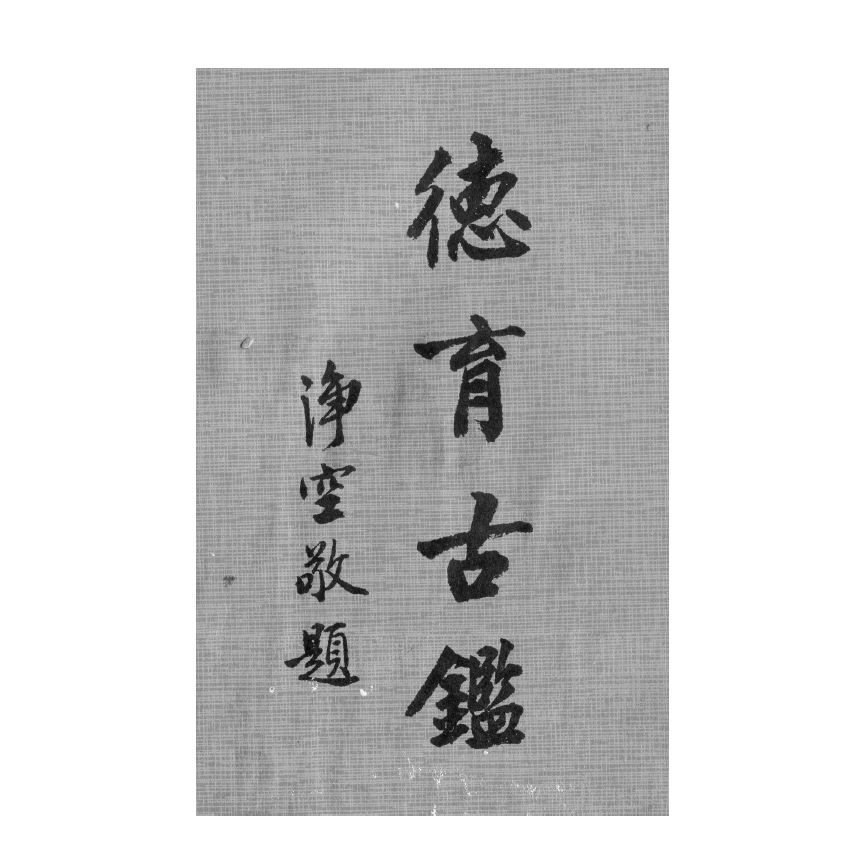 德育古鑑
淨空敬題